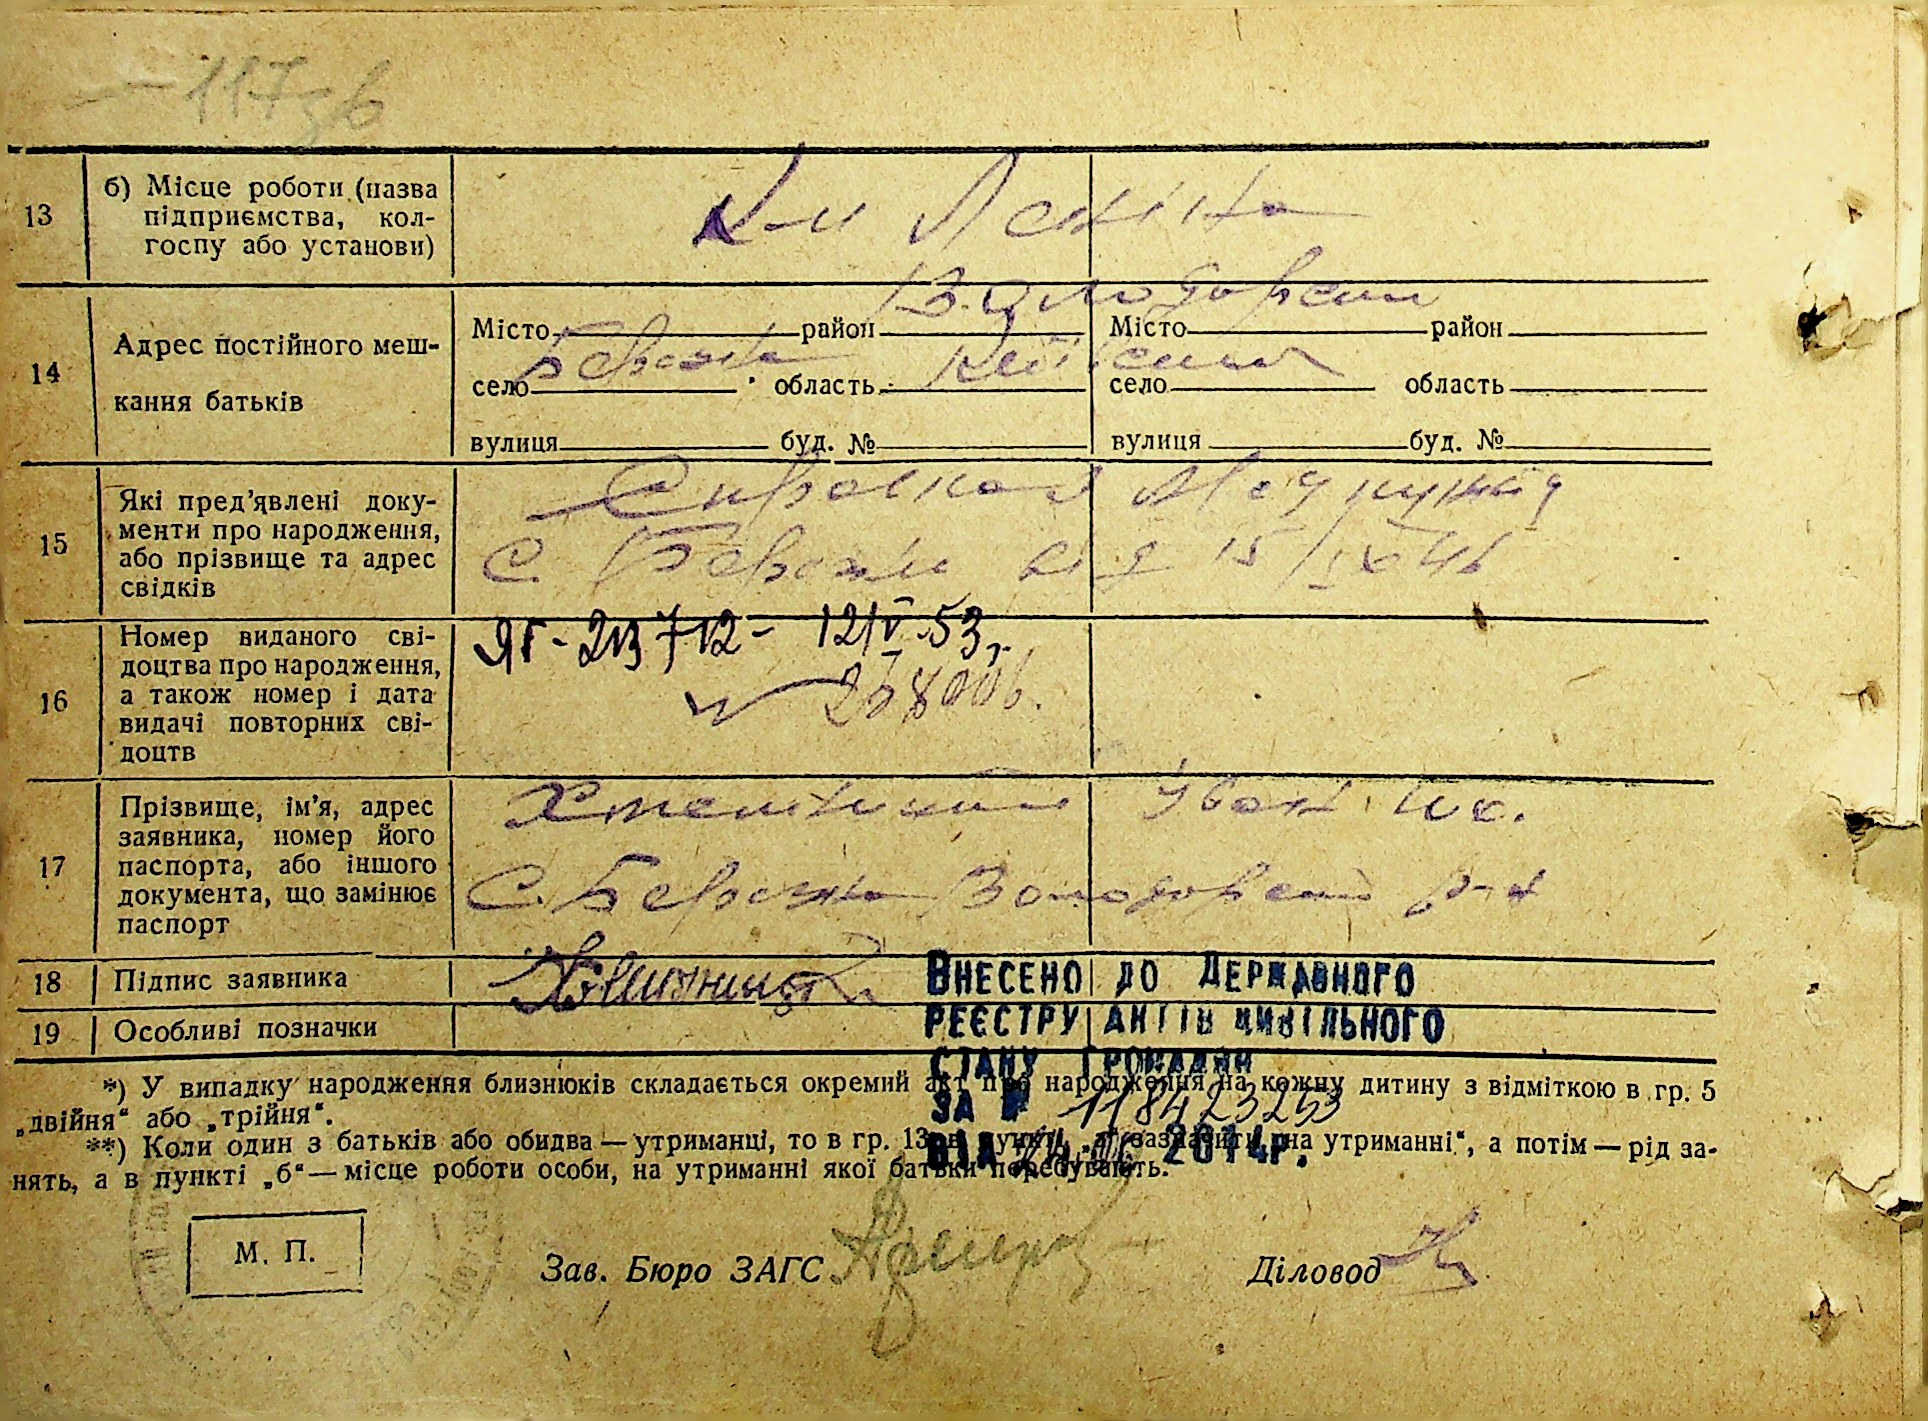 117зв
13 б) Місце роботи (назва
підприємства, кол-
госпу або установи)
к-п Леніна
14 Адрес постійного меш-
кання батьків
Володарськ
Місто район Місто район
Бережна Київська
село область село область
вулиця буд. № вулиця буд. №
15 Які пред’явлені доку-
менти про народження,
або прізвище та адрес
свідків
с. від 15/IX 46
16 Номер виданого сві-
доцтва про народження,
а також номер і дата
видачі повторних сві-
доцтв
ЯГ-213712- 12/V-53
17 Прізвище, ім’я, адрес
заявника, номер його
паспорта, або іншого
документа, що замінює
паспорт
Іван
с. Бережна р-н
18 Підпис заявника
19 Особливі позначки
Внесено до Державного
реєстру актів цивільного
стану громадян
за № 118423253
від 2014р.
*) У випадку народження близнюків складається окремий акт про народження на кожну дитину з відміткою в гр. 5
„двійня“ або „трійня“.
**) Коли один з батьків або обидва — утриманці, то в гр. 13 в пункті „а“ зазначити „на утриманні“, а потім — рід за-
нять, а в пункті „б“ — місце роботи особи, на утриманні якої батьки перебувають.
М. П.
Зав. Бюро ЗАГС
Діловод